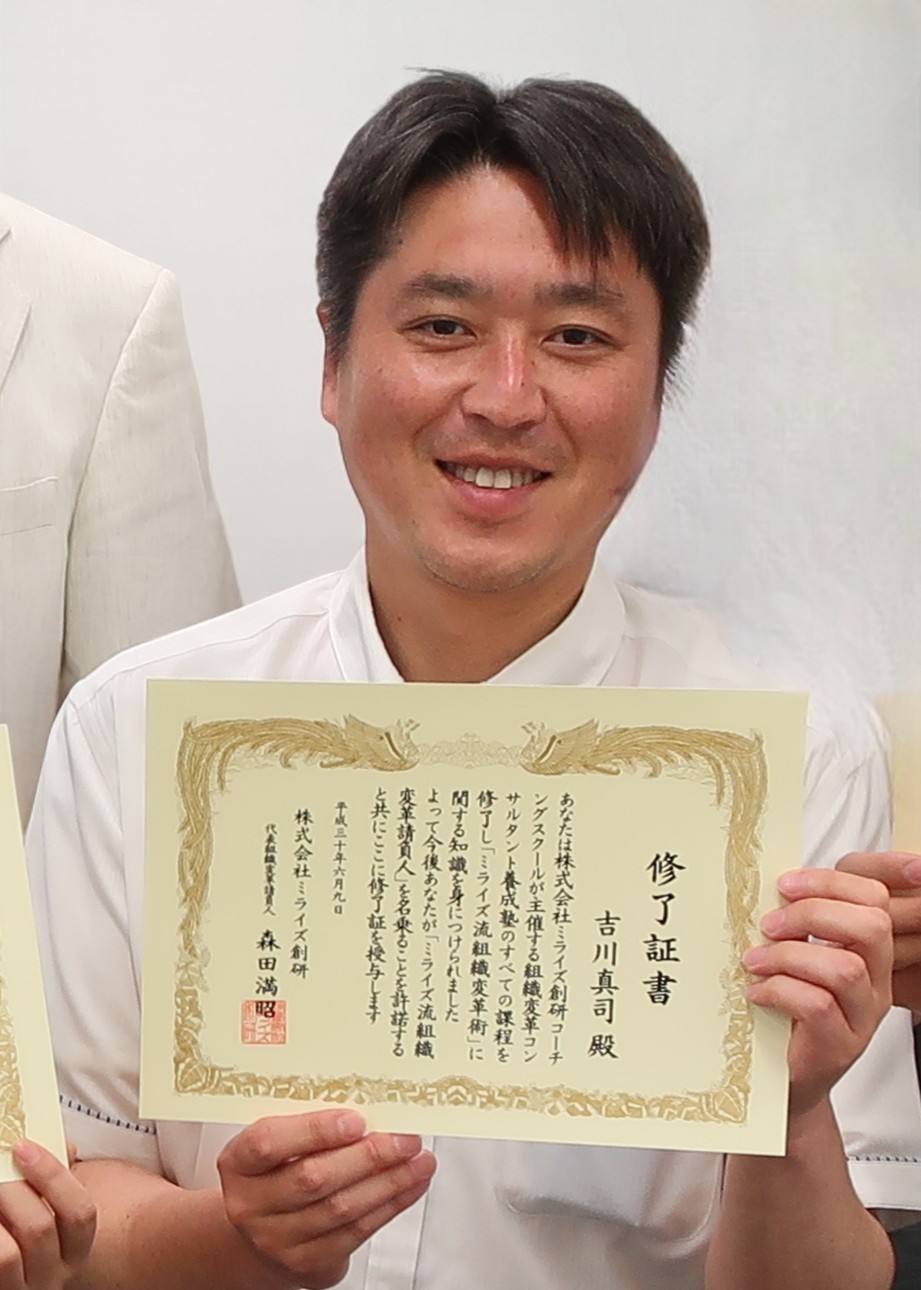 修了証書
吉川真司 殿
あなたは株式会社ミライズ創研コーチ
ングスクールが主催する組織変革コン
サルタント養成塾のすべての課程を
修了し「ミライズ流組織変革術」に
関する知識を身につけられました
よって今後あなたが「ミライズ流組織
変革請負人」を名乗ることを許諾する
と共にここに修了証を授与します
平成三十年六月九日
株式会社ミライズ創研
代表組織変革請負人 森田満昭